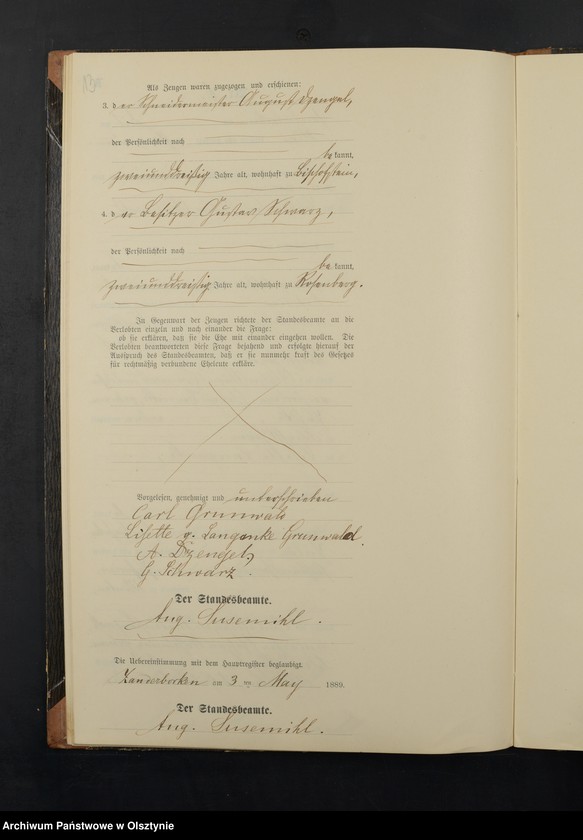 Als Zeugen waren zugezogen und erschienen:
3. der Schneidermeister August Dzengel,
der Persönlichkeit nach
be kannt,
zweiunddreißig Jahre alt, wohnhaft zu Bischofstein,
4. der Besitzer Gustav Schwarz,
der Persönlichkeit nach
be kannt,
zweiunddreißig Jahre alt, wohnhaft zu Rosenberg.
In Gegenwart der Zeugen richtete der Standesbeamte an die
Verlobten einzeln und nach einander die Frage:
ob sie erklären, daß sie die Ehe mit einander eingehen wollen. Die
Verlobten beantworteten diese Frage bejahend und erfolgte hierauf der
Ausspruch des Standesbeamten, daß er sie nunmehr kraft des Gesetzes
für rechtmäßig verbundene Eheleute erkläre.
Vorgelesen, genehmigt und unterschrieben
Carl Grunwald
Lisette g. Langanke Grunwald.
A. Dzengel,
G. Schwarz.
Der Standesbeamte.
Aug. Susemihl.
Die Uebereinstimmung mit dem Hauptregister beglaubigt.
am 3 ten May 1889.
Der Standesbeamte.
Aug. Susemihl.
Archiwum Państwowe w Olsztynie